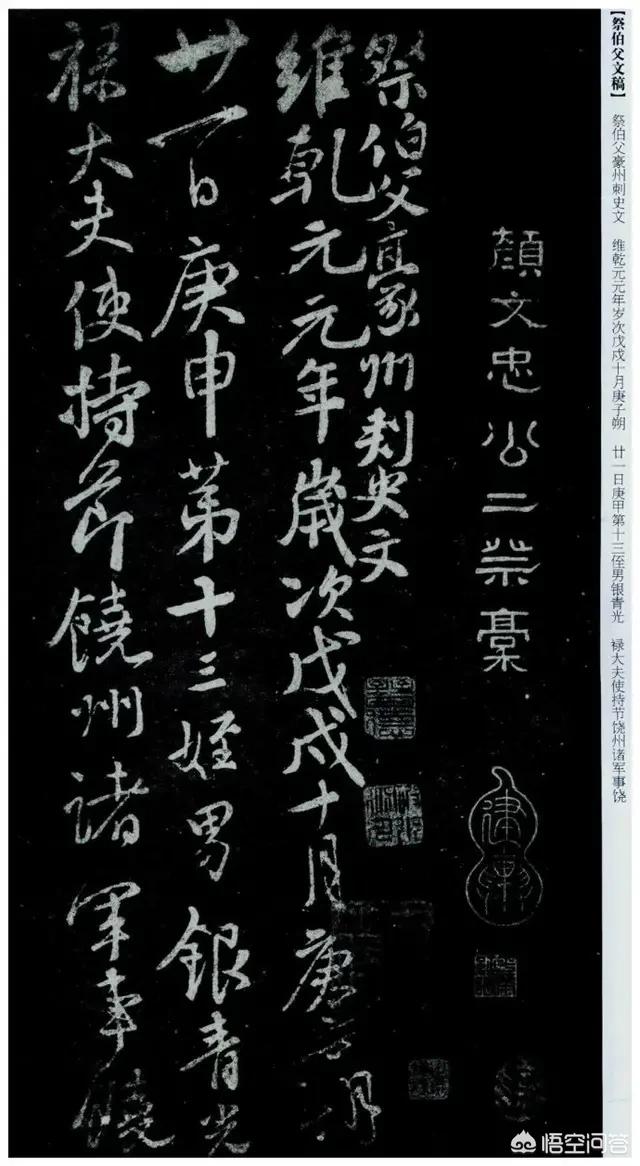 【祭伯父文稿】 祭伯父豪州刺史文 维乾元元年岁次戊戌十月庚子朔 廿一日庚甲第十三侄男银青光 禄大夫使持节饶州诸军事饶
顏文忠公二祭稾
祭伯父豪州刺史文
維乾元元年歲次戊戌十月庚子朔
廿一日庚申第十三姪男銀青光
祿大夫使持節饒州諸軍事饒
悟空问答